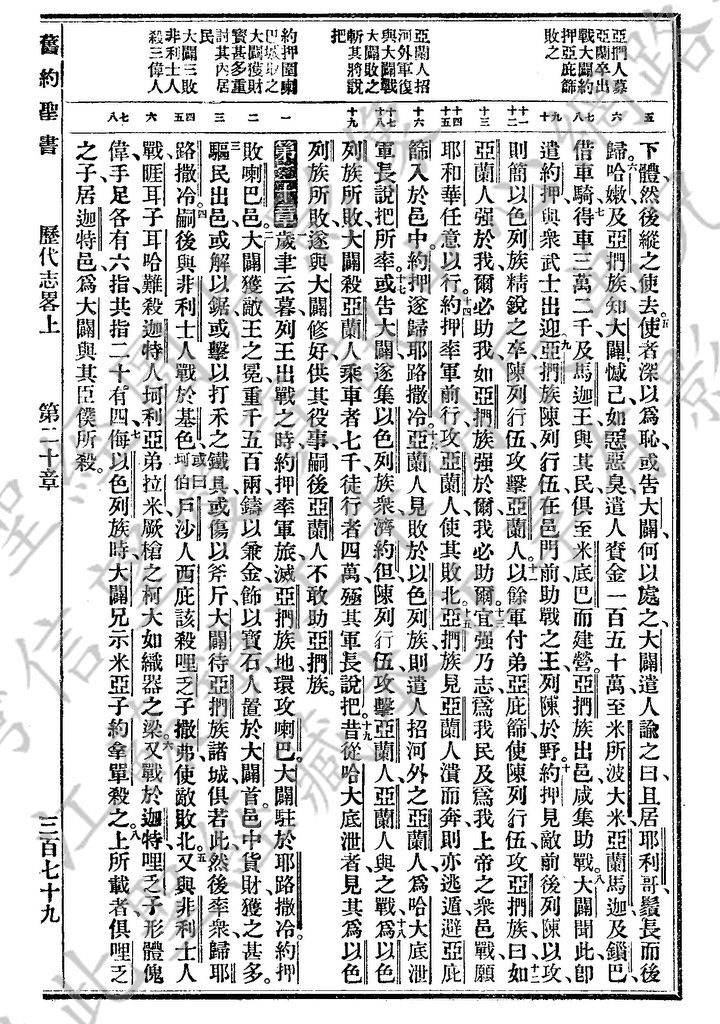 亞捫人募
亞蘭卒出
戰大闢約
押亞庇篩
敗之
亞蘭人招
河外軍復
與大闢戰
大闢敗之
斬其將說
把
約押圍喇
巴城取之
大闢獲財
寶甚多重
討其內居
民
大闢三敗
非利士人
殺三偉人
五
六
七八
九十
十一十二
十三
十四十五
十六
十七十八
十九
一
二
三
四五
六
七八
下體、然後縱之使去。五使者深以爲恥、或告大闢何以處之、大闢遣人諭之曰、且居耶利哥、鬚長而後
歸。六哈嫩及亞捫族知大闢憾己、如惡惡臭、遣人資金一百五十萬、至米所波大米、亞蘭馬迦、及鎖巴、
借車騎、七得車三萬二千、及馬迦王與其民、俱至米底巴而建營、亞捫族出邑、咸集助戰。八大闢聞此、卽
遣約押與衆武士出迎、九亞捫族陳列行伍在邑門前、助戰之王列陳於野。十約押見敵前後列陳以攻、
則簡以色列族精銳之卒、陳列行伍、攻擊亞蘭人。十一以餘軍付弟亞庇篩、使陳列行伍、攻亞捫族、十二曰、如
亞蘭人强於我、爾必助我、如亞捫族强於爾、我必助爾。十三宜强乃志、爲我民及爲我上帝之衆邑戰、願
耶和華任意以行。十四約押率軍前行、攻亞蘭人、使其敗北。十五亞捫族見亞蘭人潰而奔、則亦逃遁、避亞庇
篩、入於邑中、約押遂歸耶路撒冷。十六亞蘭人見敗於以色列族、則遣人招河外之亞蘭人、爲哈大底泄
軍長說把所率。十七或告大闢、遂集以色列族衆、濟約但、陳列行伍、攻擊亞蘭人、亞蘭人與之戰、十八爲以色
列族所敗、大闢殺亞蘭人乘車者七千、徒行者四萬、殛其軍長說把。十九昔從哈大底泄者、見其爲以色
列族所敗、遂與大闢修好、供其役事、嗣後亞蘭人不敢助亞捫族。
第二十章 歲聿云暮、列王出戰之時、約押率軍旅滅亞捫族地、環攻喇巴、大闢駐於耶路撒冷、約押
敗喇巴邑。二大闢獲敵王之冕、重千五百兩、鑄以兼金、飾以寶石、人置於大闢首、邑中貨財、獲之甚多。
三驅民出邑、或解以鋸、或擊以打禾之鐵具、或傷以斧斤、大闢待亞捫族諸城俱若此、然後率衆歸耶
路撒冷。四嗣後與非利士人戰於基色、或曰坷伯戶沙人西庇該殺哩乏子撒弗、使敵敗北。五又與非利士人
戰、睚耳子耳哈難殺迦特人坷利亞弟拉米、厥槍之柯大如織器之梁。六又戰於迦特、哩乏子形體傀
偉、手足各有六指、共指二十有四、七侮以色列族時、大闢兄示米亞子約拿單殺之。八上所載者、俱哩乏
之子、居迦特邑、爲大闢與其臣僕所殺。
舊約聖書 歷代志畧上 第二十章 三百七十九